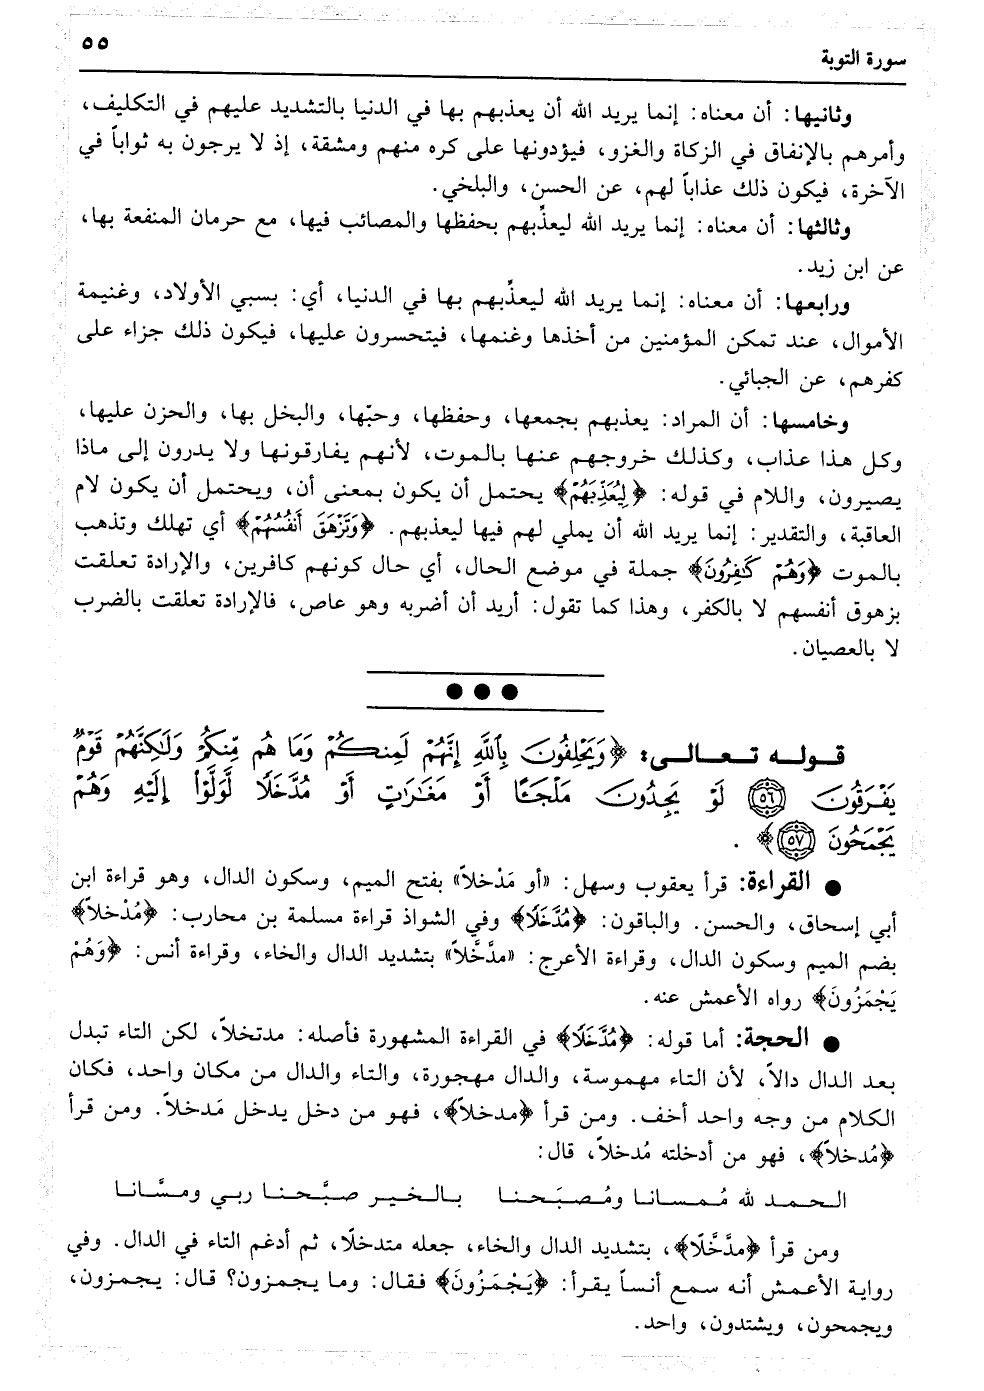 سورة التوبة
٥٥
وثانيها: أن معناه: إنما يريد الله أن يعذبهم بها في الدنيا بالتشديد عليهم في التكليف،
وأمرهم بالإنفاق في الزكاة والغزو، فيؤدونها على كره منهم ومشقة، إذ لا يرجون به ثواباً في
الآخرة، فيكون ذلك عذاباً لهم، عن الحسن، والبلخي.
وثالثها: أن معناه: إنما يريد الله ليعذِّبهم بحفظها والمصائب فيها، مع حرمان المنفعة بها،
عن ابن زيد.
ورابعها: أن معناه: إنما يريد الله ليعذِّبهم بها في الدنيا، أي: بسبي الأولاد، وغنيمة
الأموال، عند تمكن المؤمنين من أخذها وغنمها، فيتحسرون عليها، فيكون ذلك جزاء على
كفرهم، عن الجبائي.
وخامسها: أن المراد: يعذبهم بجمعها، وحفظها، وحبّها، والبخل بها، والحزن عليها،
وكل هذا عذاب، وكذلك خروجهم عنها بالموت، لأنهم يفارقونها ولا يدرون إلى ماذا
يصيرون، واللام في قوله: ﴿لِيُعَذِّبَهُمْ﴾ يحتمل أن يكون بمعنى أن، ويحتمل أن يكون لام
العاقبة، والتقدير: إنما يريد الله أن يملي لهم فيها ليعذبهم. ﴿وَتَزْهَقَ أَنفُسُهُمْ﴾ أي تهلك وتذهب
بالموت ﴿وَهُمْ كَٰفِرُونَ﴾ جملة في موضع الحال، أي حال كونهم كافرين، والإرادة تعلقت
بزهوق أنفسهم لا بالكفر، وهذا كما تقول: أريد أن أضربه وهو عاص، فالإرادة تعلقت بالضرب
لا بالعصيان.
قوله تعالى: ﴿وَيَحْلِفُونَ بِٱللَّهِ إِنَّهُمْ لَمِنكُمْ وَمَا هُم مِّنكُمْ وَلَٰكِنَّهُمْ قَوْمٌ
يَفْرَقُونَ ٥٦ لَوْ يَجِدُونَ مَلْجَـًٔا أَوْ مَغَٰرَٰتٍ أَوْ مُدَّخَلًا لَّوَلَّوْا۟ إِلَيْهِ وَهُمْ
يَجْمَحُونَ ٥٧﴾.
● القراءة: قرأ يعقوب وسهل: «أو مَدْخلاً» بفتح الميم، وسكون الدال، وهو قراءة ابن
أبي إسحاق، والحسن. والباقون: ﴿مُدَّخَلًا﴾ وفي الشواذ قراءة مسلمة بن محارب: ﴿مُدْخلاً﴾
بضم الميم وسكون الدال، وقراءة الأعرج: «مدَّخَّلاً» بتشديد الدال والخاء، وقراءة أنس: ﴿وَهُمْ
يَجْمَزُونَ﴾ رواه الأعمش عنه.
● الحجة: أما قوله: ﴿مُدَّخَلًا﴾ في القراءة المشهورة فأصله: مدتخلاً، لكن التاء تبدل
بعد الدال دالاً، لأن التاء مهموسة، والدال مهجورة، والتاء والدال من مكان واحد، فكان
الكلام من وجه واحد أخف. ومن قرأ ﴿مدخلاً﴾، فهو من دخل يدخل مَدخلاً. ومن قرأ
﴿مُدخلاً﴾، فهو من أدخلته مُدخلاً، قال:
الحمد لله مُمسانا ومُصبَحنا بالخير صبَّحنا ربي ومسَّانا
ومن قرأ ﴿مدَّخَّلًا﴾، بتشديد الدال والخاء، جعله متدخلًا، ثم أدغم التاء في الدال. وفي
رواية الأعمش أنه سمع أنساً يقرأ: ﴿يَجْمَزُونَ﴾ فقال: وما يجمزون؟ قال: يجمزون،
ويجمحون، ويشتدون، واحد.